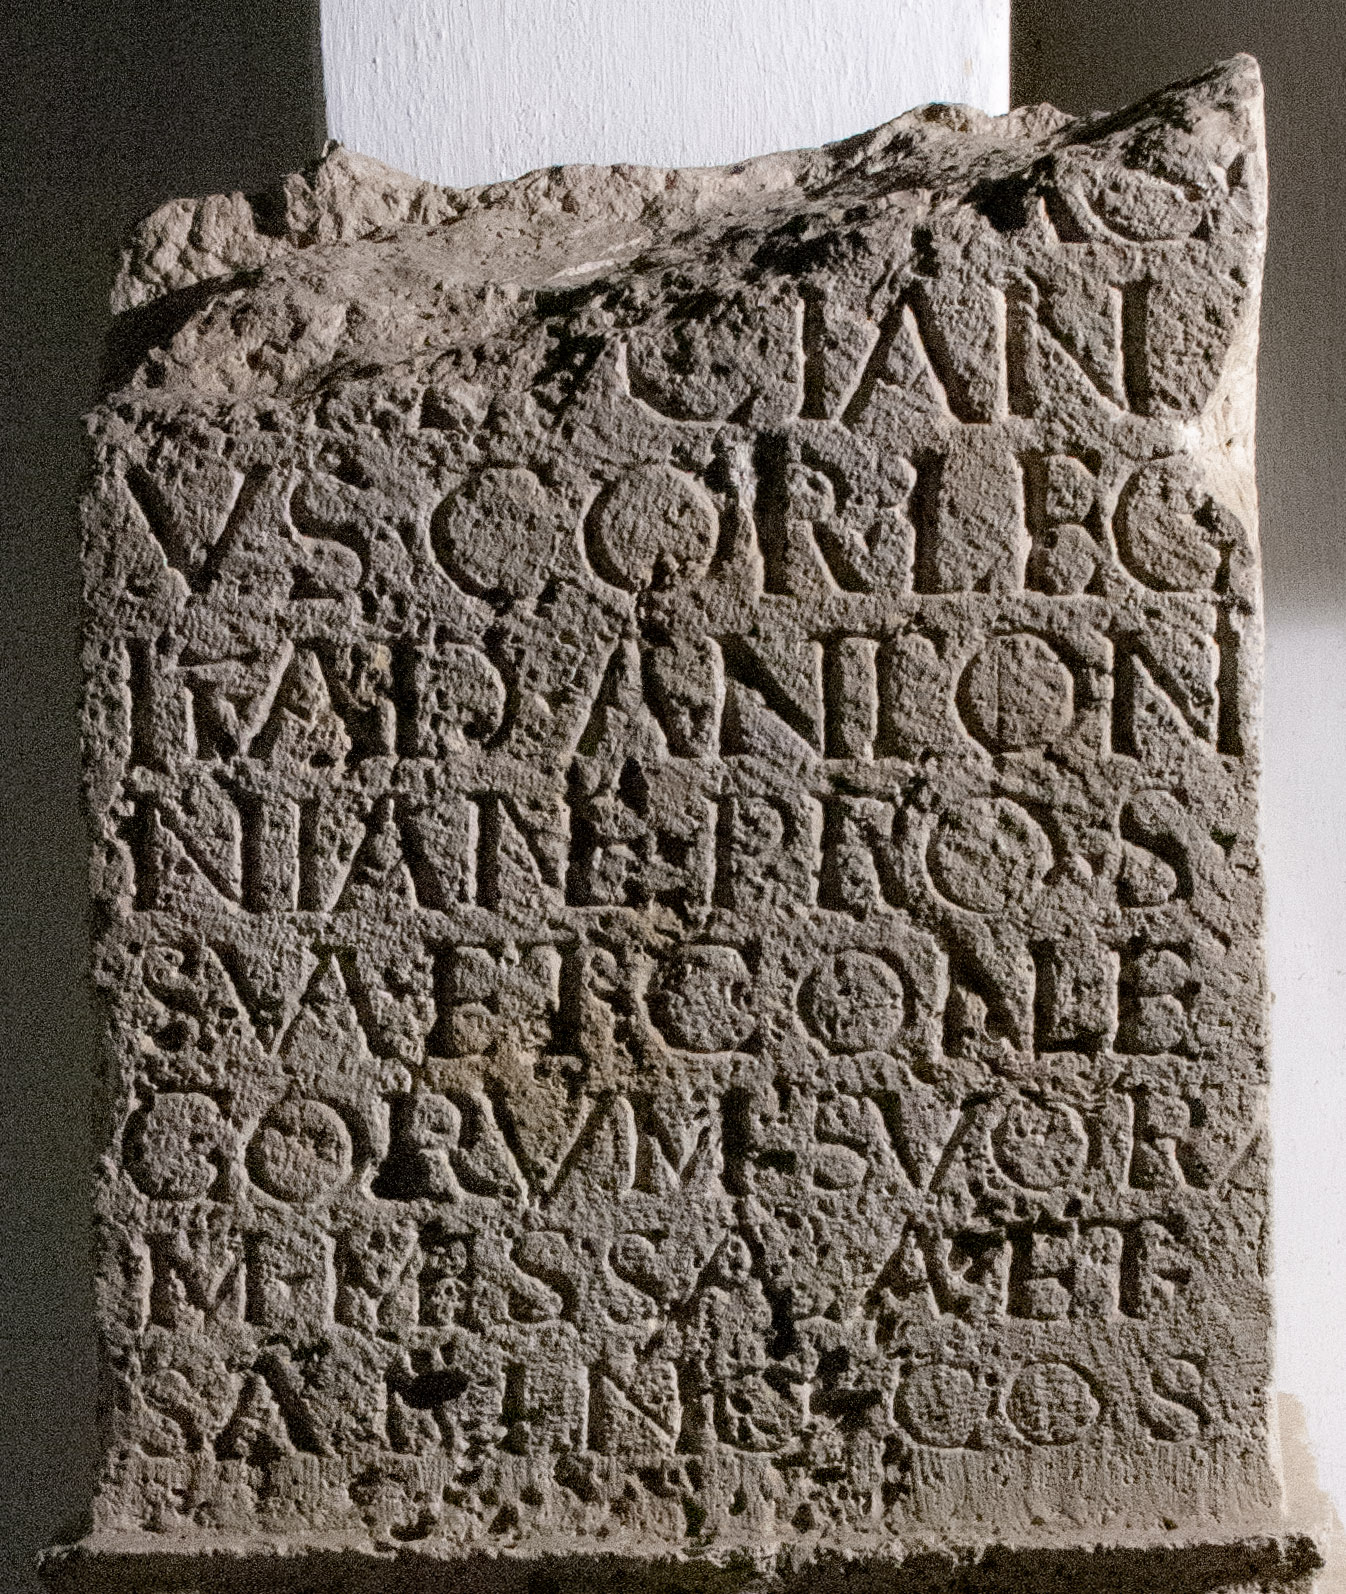 CIAN
VS COR LEG
I AD ANTON
NIANE PRO S
SVA ET CONLE
GORVM SVORV
M MESSALA ET
SABINO COS